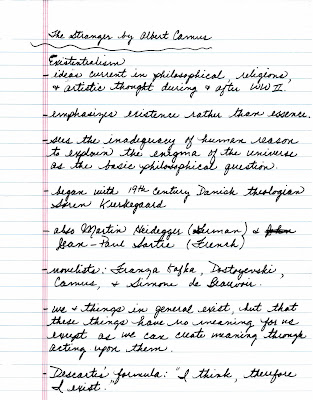 The Stranger by Albert Camus
Existentialism
- ideas current in philosophical, religious,
& artistic thought during & after WW II.
- emphasizes existence rather than essence.
- sees the inadequacy of human reason
to explain the enigma of the universe
as the basic philosophical question.
- began with 19th century Danish theologian
Søren Kierkegaard
- also Martin Heidegger (German) &
Jean-Paul Sartre (French)
- novelists: Franz Kafka, Dostoyevski,
Camus, & Simone de Beauvoir.
- we & things in general exist, but that
these things have no meaning for us
except as we can create meaning through
acting upon them.
- Descartes' formula: "I think, therefore
I exist."